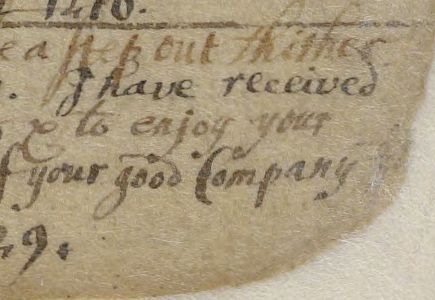 1476.
e a step out thither
. I have received
& to enjoy your
f your good Company
49.